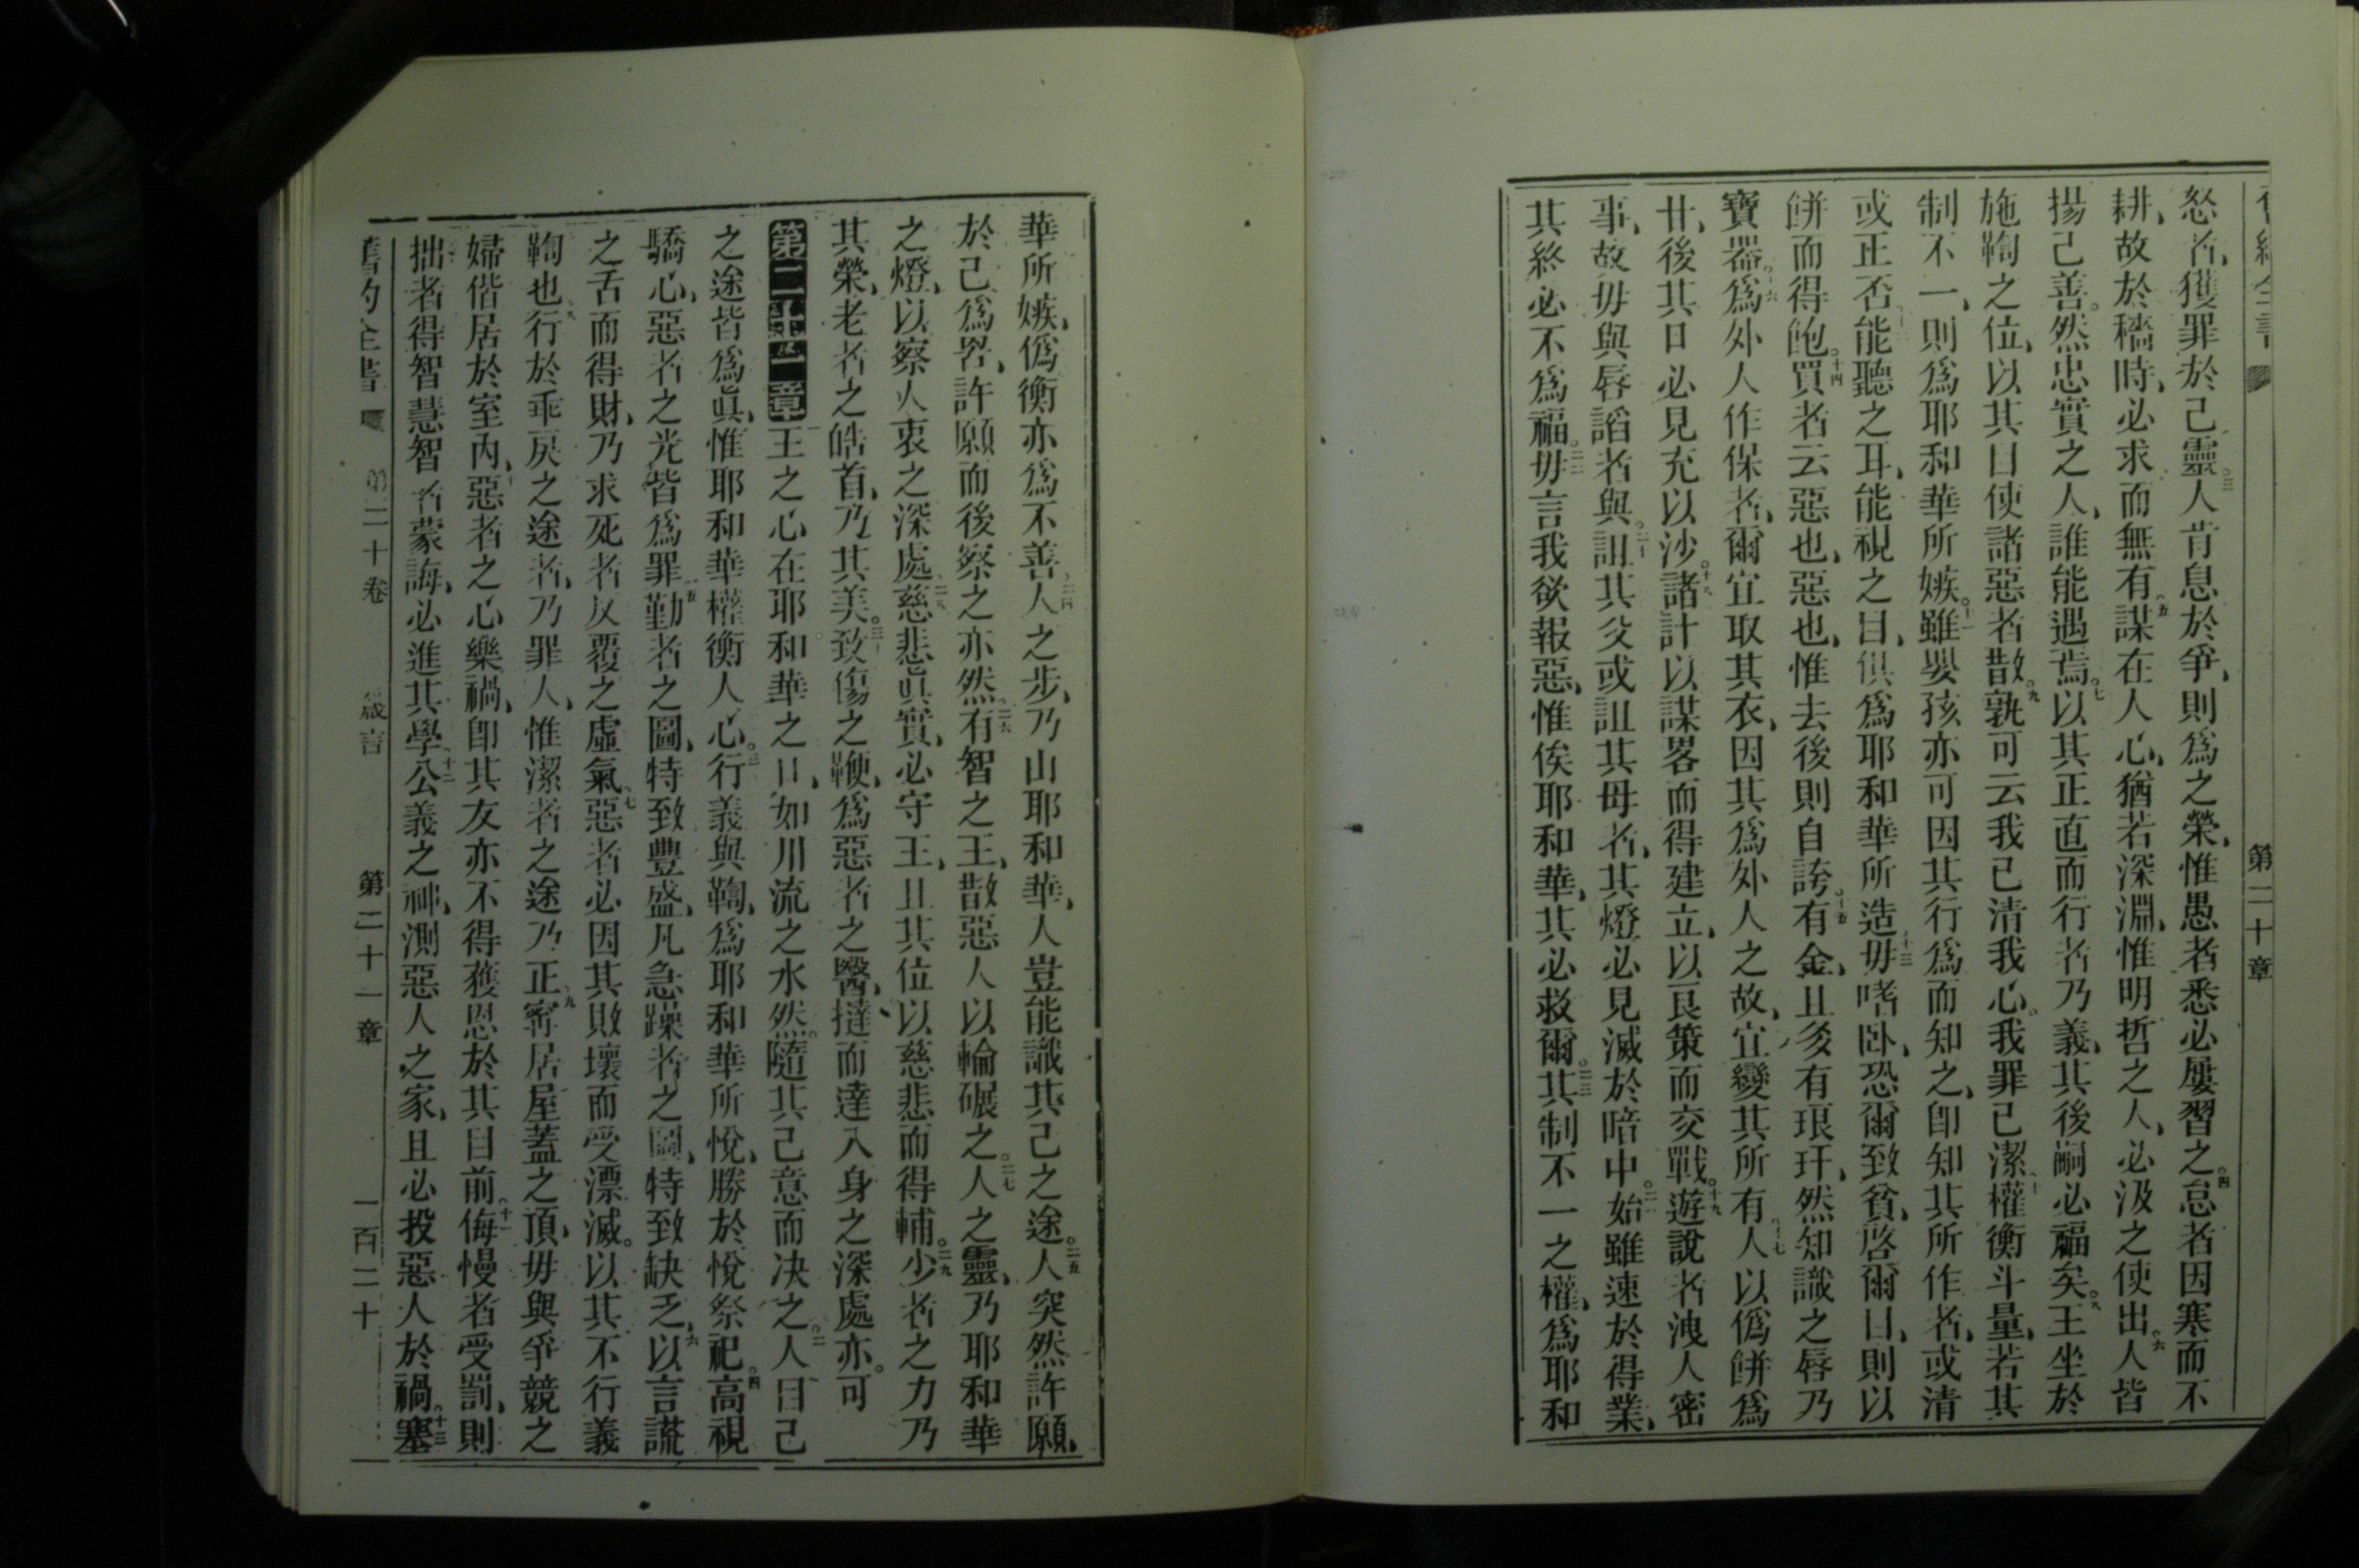 第二十章
怒者、獲罪於己靈。三人肯息於爭、則爲之榮、惟愚者悉必屢習之。四怠者因寒而不
耕、故於穡時、必求而無有。五謀在人心、猶若深淵、惟明哲之人、必汲之使出。六人皆
揚己善。然忠實之人、誰能遇焉。七以其正直而行者乃義、其後嗣必福矣。八王坐於
施鞫之位、以其目使諸惡者散。九孰可云我已清我心。我罪已潔。十權衡斗量、若其
制不一、則爲耶和華所嫉。十一雖嬰孩亦可因其行爲而知之、卽知其所作者、或清
或正否。十二能聽之耳、能視之目、俱爲耶和華所造。十三毋嗜卧、恐爾致貧、啓爾目、則以
餅而得飽。十四買者云惡也、惡也、惟去後則自誇。十五有金、且多有琅玕、然知識之唇乃
寶器。十六爲外人作保者、爾宜取其衣、因其爲外人之故、宜變其所有。十七人以僞餅爲
甘、後其口必見充以沙。十八諸計以謀畧而得建立、以良策而交戰。十九遊說者洩人密
事、故毋與唇謟者與。二十詛其父或詛其母者、其燈必見滅於暗中。二一始雖速於得業、
其終必不爲福。二二毋言我欲報惡、惟俟耶和華、其必救爾。二三其制不一之權、爲耶和
華所嫉、僞衡亦爲不善。二四人之步、乃由耶和華、人豈能識其己之途。二五人突然許願、
於己爲罟、許願而後察之亦然。二六有智之王、散惡人以輪碾之。二七人之靈、乃耶和華
之燈、以察人衷之深處。二八慈悲眞實、必守王、且其位以慈悲而得輔。二九少者之力乃
其榮、老者之皓首、乃其美。三十致傷之鞭、爲惡者之醫、撻而達入身之深處亦可。
第二十一章 一王之心在耶和華之手、如川流之水然。隨其己意而决之。二人目己
之途皆爲眞、惟耶和華權衡人心。三行義與鞫、爲耶和華所悅、勝於悅祭祀。四高視
驕心、惡者之光皆爲罪。五勤者之圖、特致豐盛、凡急躁者之圖、特致缺乏。六以言謊
之舌而得財、乃求死者反覆之虛氣。七惡者必因其敗壞而受漂滅。以其不行義
鞫也。八行於乖戾之途者、乃罪人、惟潔者之途乃正。九寗居屋蓋之頂、毋與爭競之
婦偕居於室內。十惡者之心樂禍、卽其友亦不得獲恩於其目前。十一侮慢者受罰、則
拙者得智慧智者蒙誨、必進其學。十二公義之神、測惡人之家、且必投惡人於禍。十三塞
舊約全書 第二十卷 箴言 第二十一章 一百二十